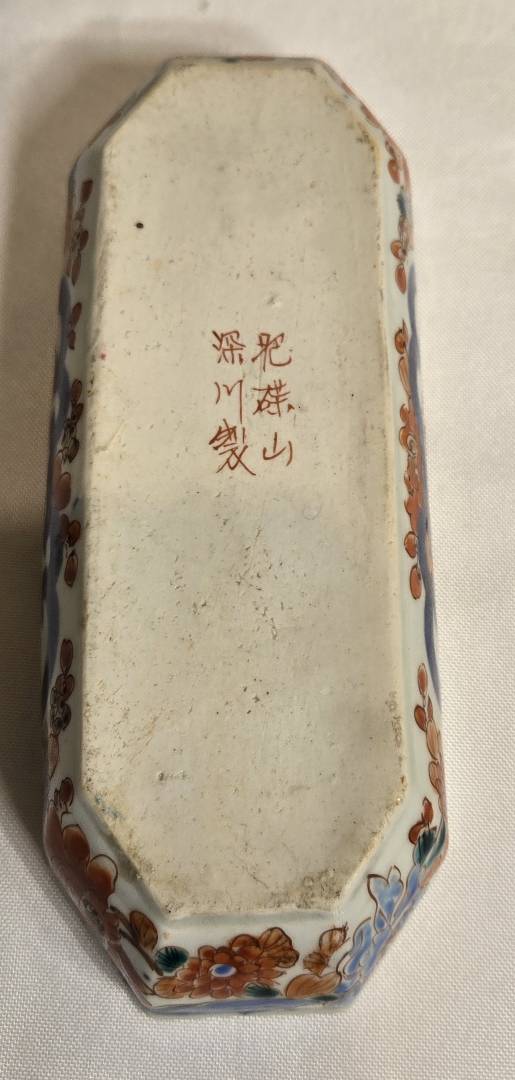 肥碟山
深川製